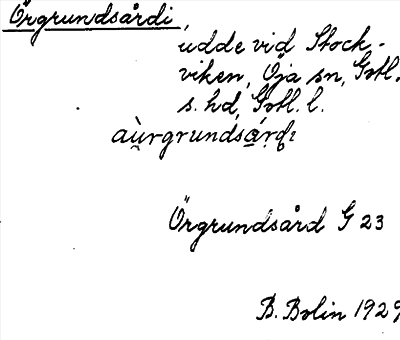 Örgrundsårdi,
udde vid Stock-
viken, Öja sn, Gotl.
s. hd, Gotl. l.
aùrgrundsárdi
Örgrundsård G 23
B. Bolin 1929